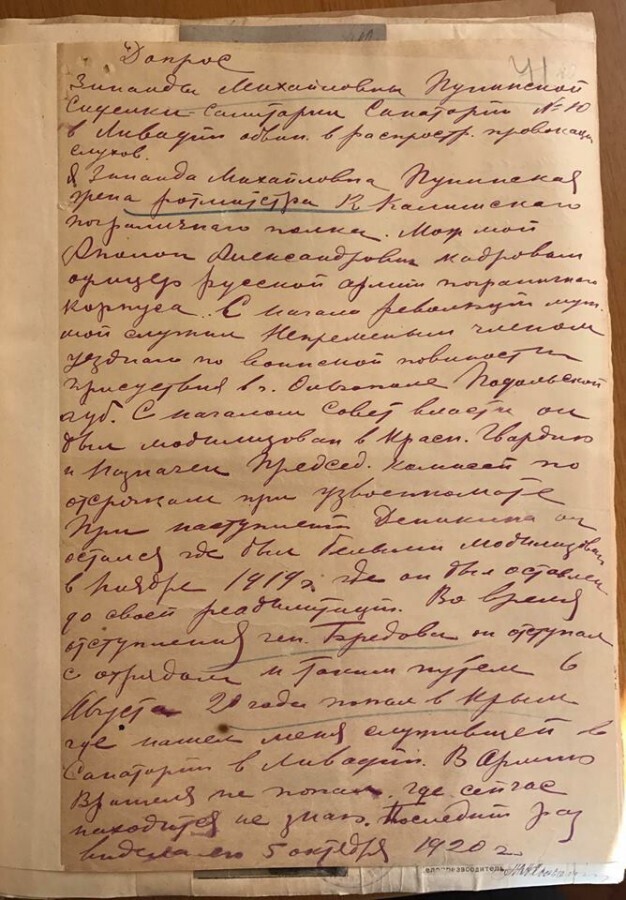 Допрос
71
Зинаиды Михайловны Пунинской
Сиделки-санитарки Санаторий № 10
в Ливадии обвин. в распростр. провокац
слухов.
Я Зинаида Михайловна Пунинская
жена ротмистра Калишского
пограничного полка. Муж мой
Александрович кадровый
офицер русской армии пограничного
корпуса. С начала революции муж
мой служил Непременным членом
уездного по воинской повинности
присуствия в г. Ольгополе Подольской
губ. С началом Совет власти он
был мобилизован в Красн. Гвардию
и назначен Председ. комиссии по
отсрочкам при уездвоенкомате
При наступлении Деникина он
остался где был белыми мобилизован
в Ноябре 1919 г. где он был оставлен
до своей реабилитации. Во время
отступления ген. Бредова он отступал
с отрядом и таким путем в
Августе 20 года попал в Крым
где нашел меня служившей в
Санатории в Ливадии. В Армию
Врангеля не попал. где сейчас
находится не знаю. Последний раз
видела его 5 октября 1920 г.
делопроизводитель